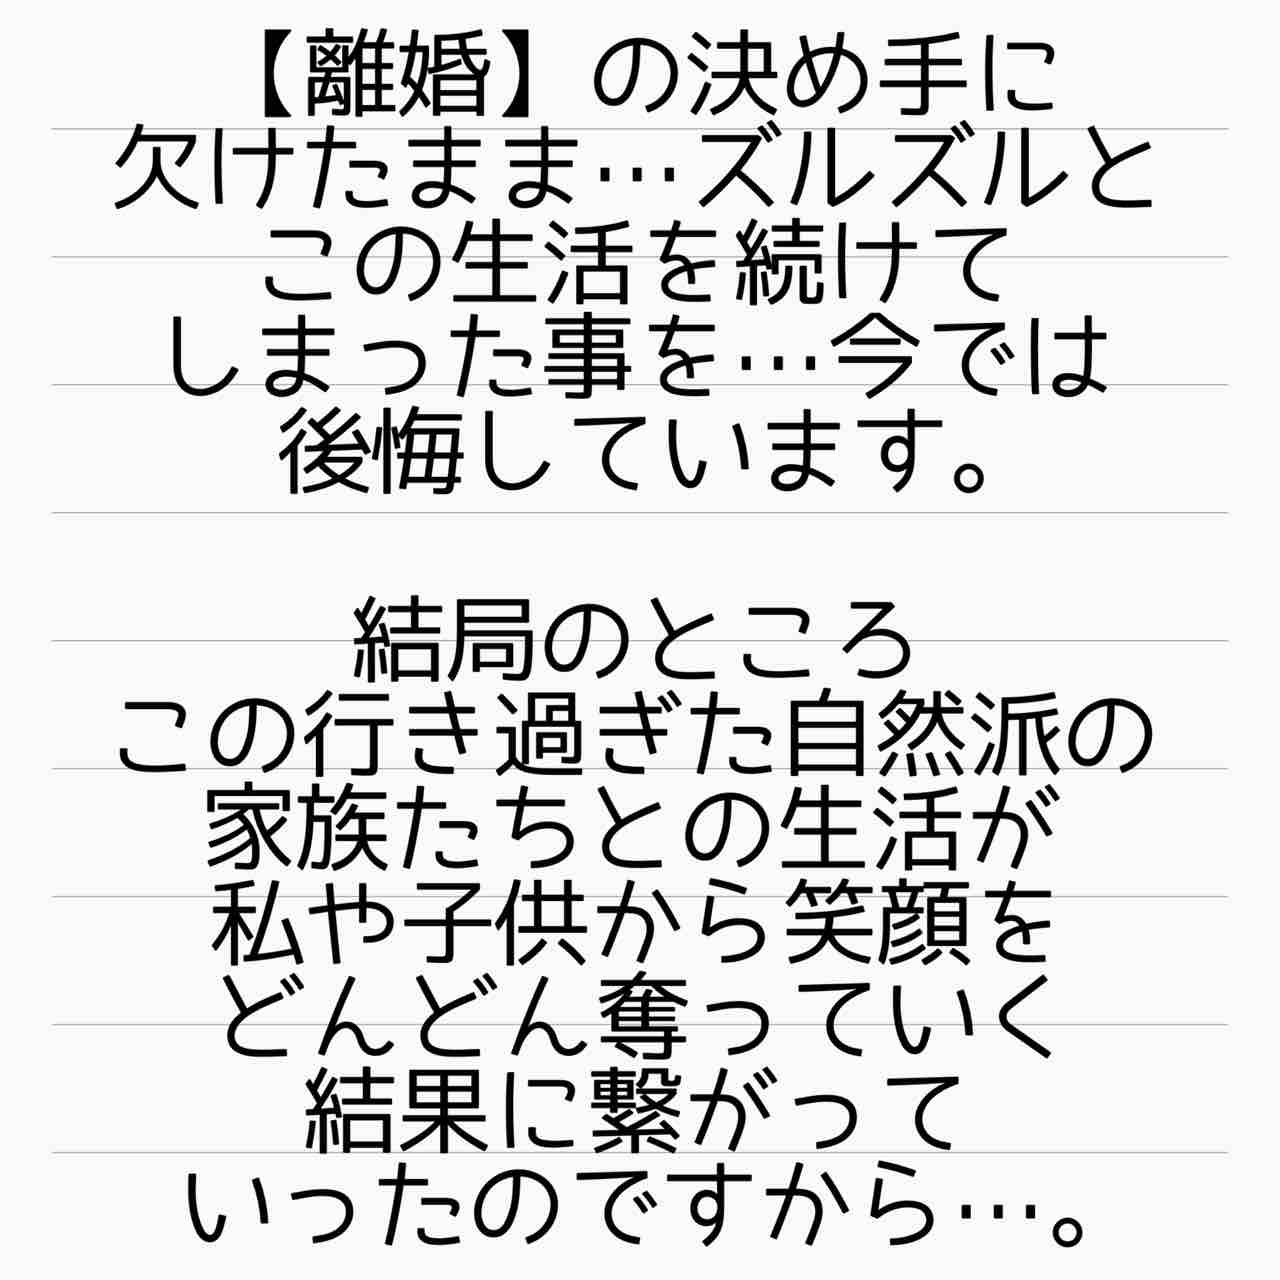 【離婚】の決め手に
欠けたまま…ズルズルと
この生活を続けて
しまった事を…今では
後悔しています。
結局のところ
この行き過ぎた自然派の
家族たちとの生活が
私や子供から笑顔を
どんどん奪っていく
結果に繋がって
いったのですから…。